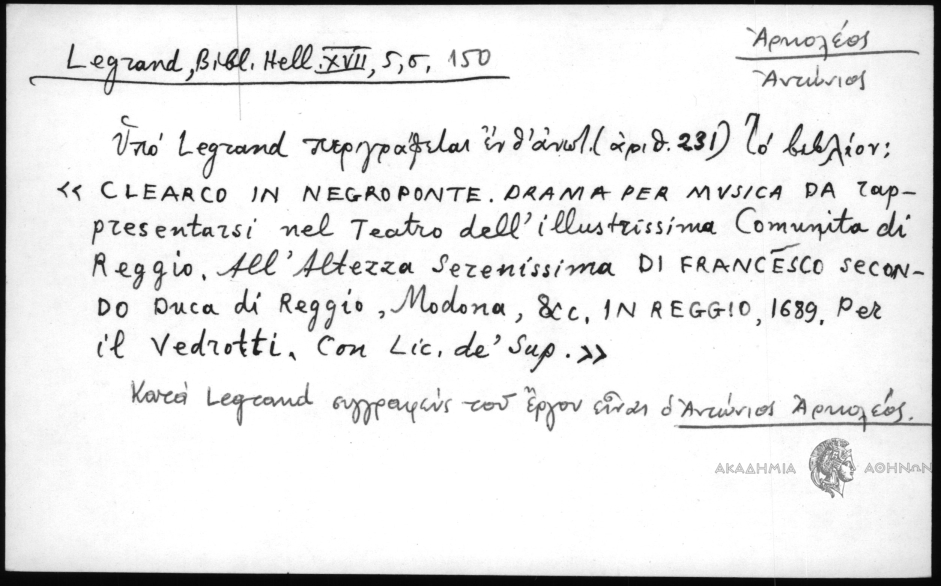 Ἀρκολέος
Ἀντώνιος
Legrand, Bibl. Hell. XVII, 5, σ. 150
Ὑπό Legrand περιγράφεται ἐν θ' ἀνωτ. (ἀριθ. 231) τό βιβλίον:
« CLEARCO IN NEGROPONTE. DRAMA PER MVSICA DA rap-
presentarsi nel Teatro dell' illustrissima Comunita di
Reggio. All' Altezza Serenissima DI FRANCESCO SECON-
DO Duca di Reggio, Modona, &c. IN REGGIO, 1689. Per
il Vedrotti. Con Lic. de' Sup. »
Κατά Legrand συγγραφεύς τοῦ ἔργου εἶναι ὁ Ἀντώνιος Ἀρκολέος.
ΑΚΑΔΗΜΙΑ ΑΘΗΝΩΝ